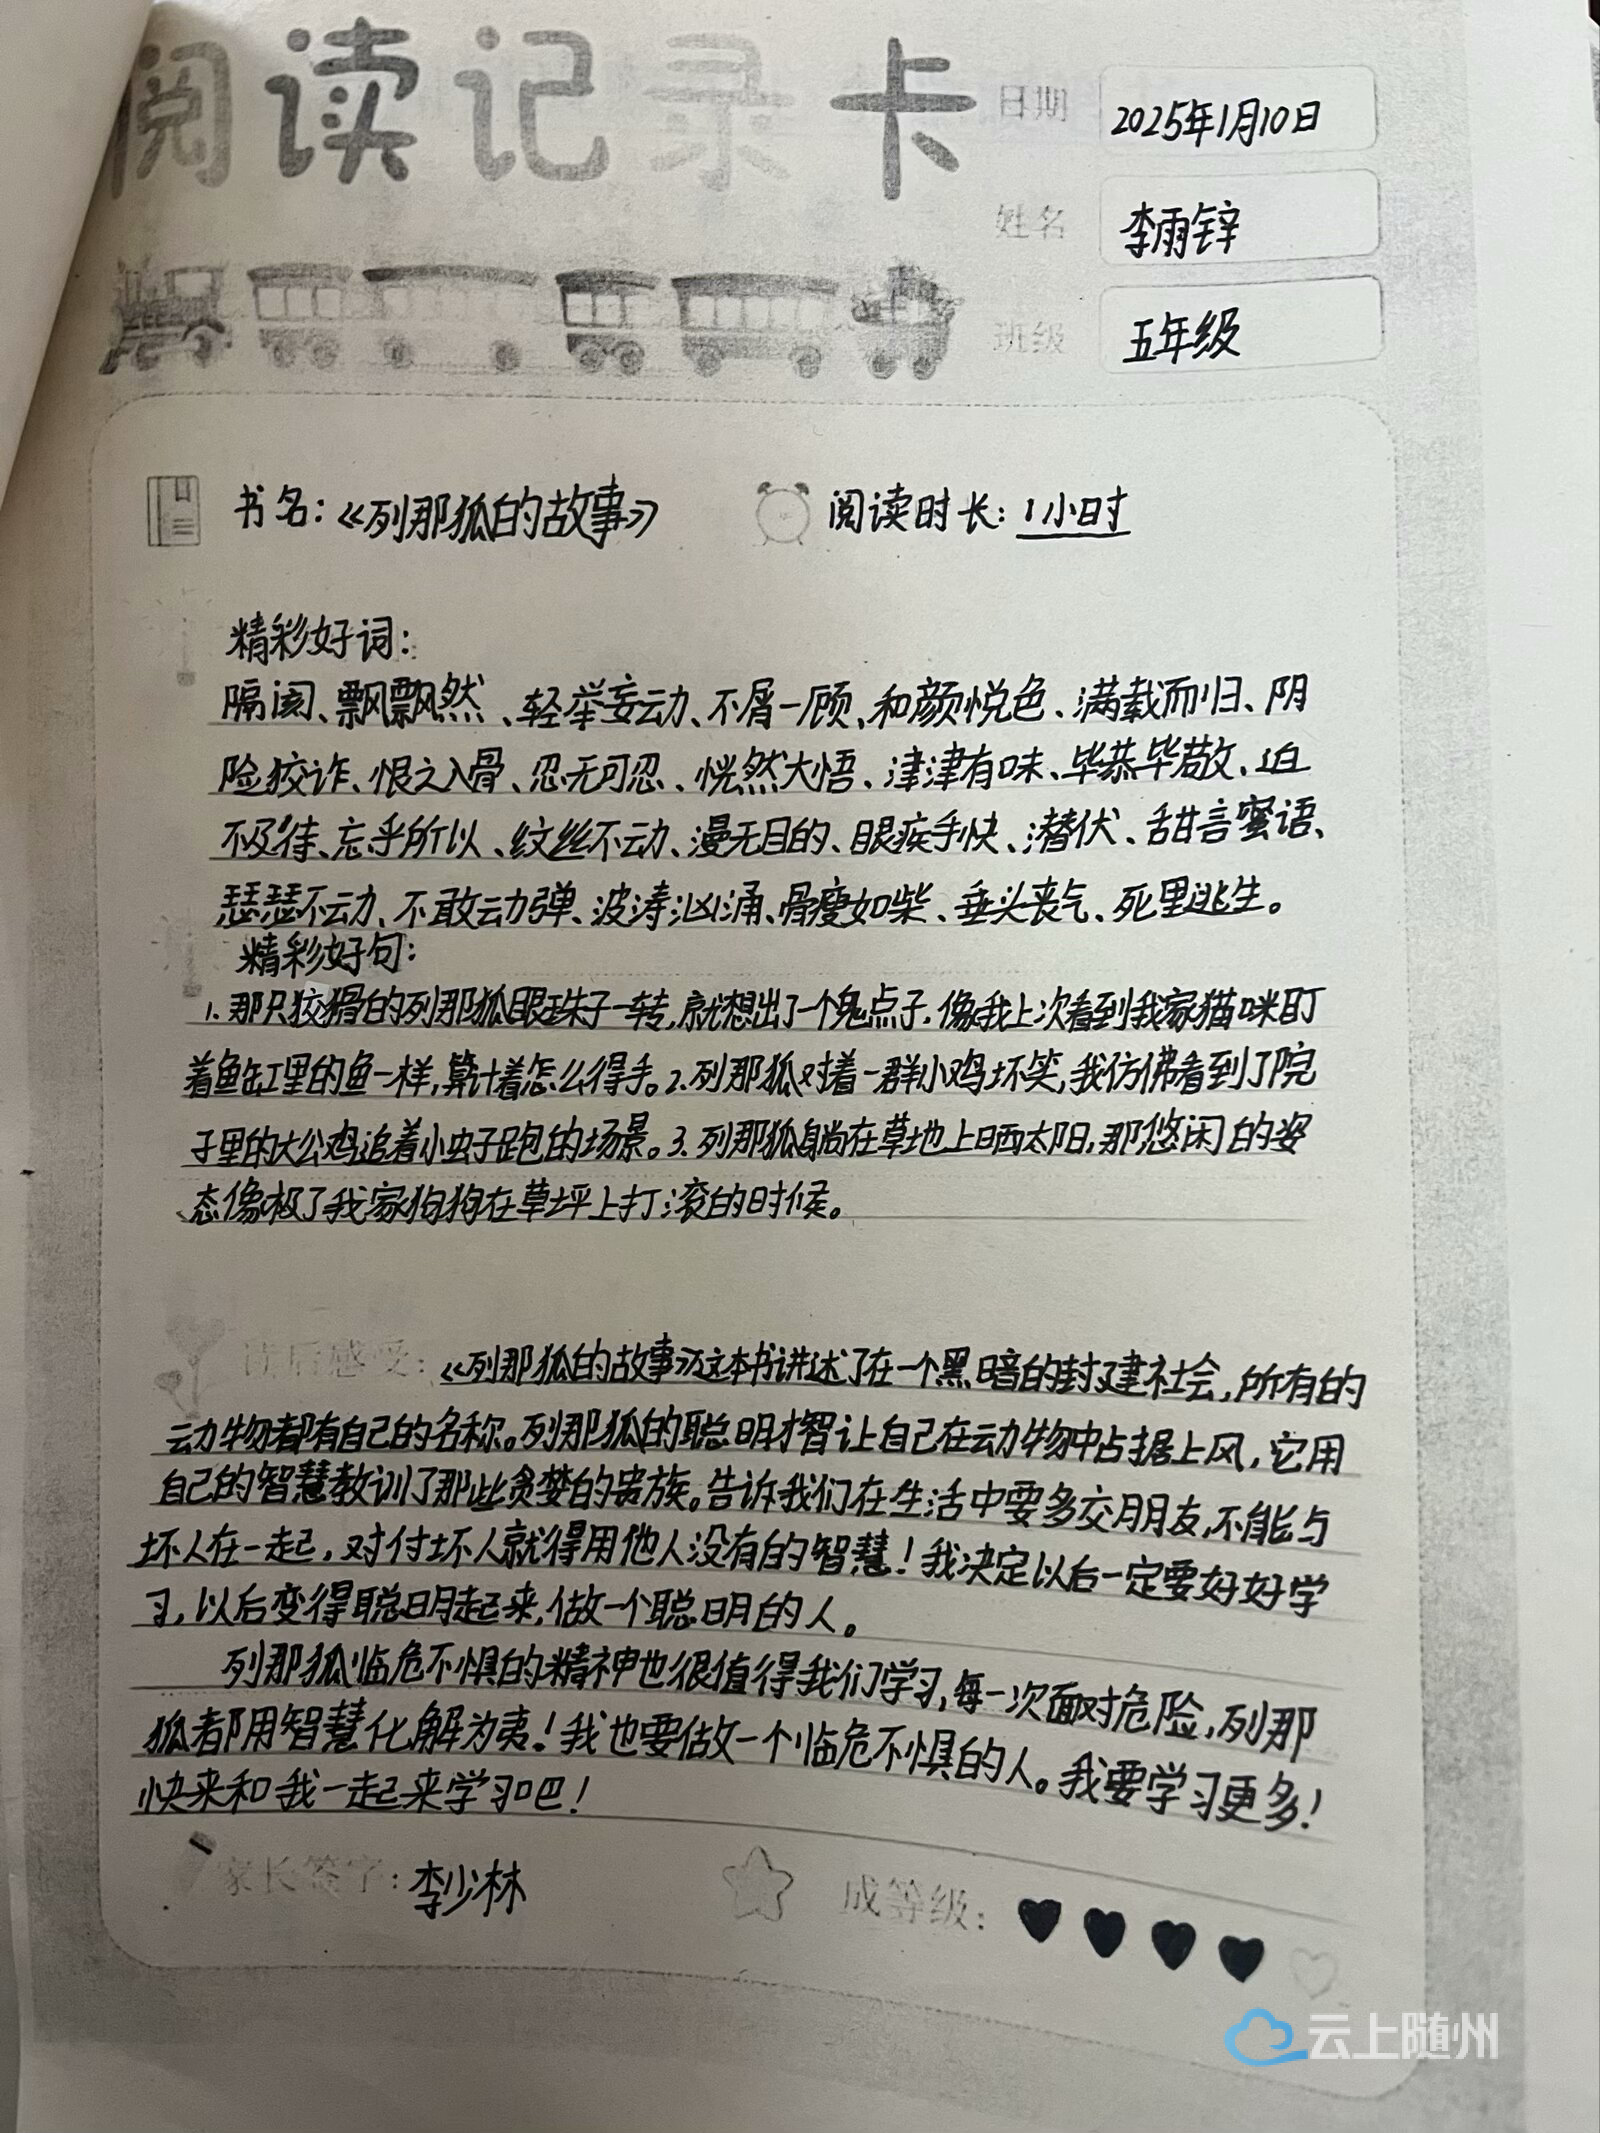 阅读记录卡
日期 2025年1月10日
姓名 李雨锌
班级 五年级
书名：《列那狐的故事》 阅读时长：1小时
精彩好词：
隔阂、飘飘然、轻举妄动、不屑一顾、和颜悦色、满载而归、阴
险狡诈、恨之入骨、忍无可忍、恍然大悟、津津有味、毕恭毕敬、迫
不及待、忘乎所以、纹丝不动、漫无目的、眼疾手快、潜伏、甜言蜜语、
瑟瑟不动、不敢动弹、波涛汹涌、骨瘦如柴、垂头丧气、死里逃生。
精彩好句：
1.那只狡猾的列那狐眼珠子一转，就想出了一个鬼点子.像我上次看到我家猫咪盯
着鱼缸里的鱼一样,算计着怎么得手。2.列那狐对着一群小鸡坏笑,我仿佛看到了院
子里的大公鸡追着小虫子跑的场景。3.列那狐躺在草地上晒太阳,那悠闲的姿
态像极了我家狗狗在草坪上打滚的时候。
读后感受：《列那狐的故事》这本书讲述了在一个黑暗的封建社会，所有的
动物都有自己的名称。列那狐的聪明才智让自己在动物中占据上风，它用
自己的智慧教训了那些贪婪的贵族。告诉我们在生活中要多交朋友,不能与
坏人在一起，对付坏人就得用他人没有的智慧！我决定以后一定要好好学
习，以后变得聪明起来,做一个聪明的人。
列那狐临危不惧的精神也很值得我们学习,每一次面对危险,列那
狐都用智慧化解为夷！我也要做一个临危不惧的人。我要学习更多！
快来和我一起来学习吧！
家长签字：李少林 成等级：
云上随州